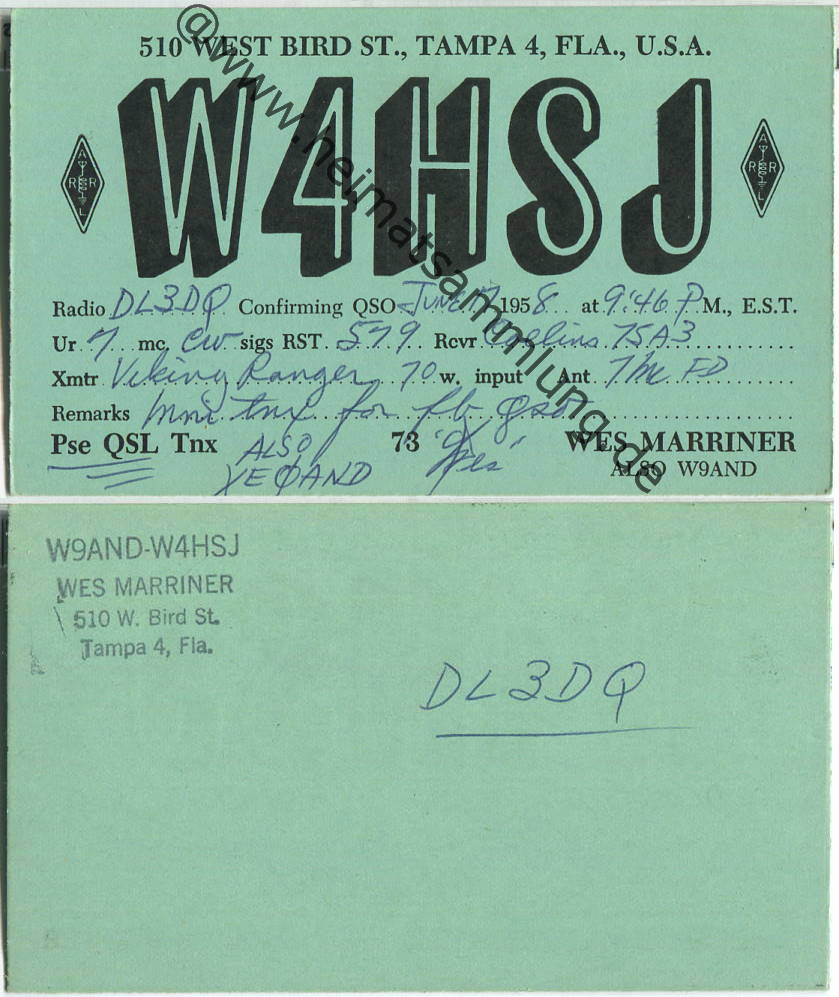 510 WEST BIRD ST., TAMPA 4, FLA., U.S.A.
W4HSJ
A R R L
A R R L
Radio DL3DQ Confirming QSO June 1958 at 9:46 P M., E.S.T.
Ur 7 mc. CW sigs RST 579 Rcvr Collins 75A3
Xmtr Viking Ranger 70 w. input Ant 7 Mc FD
Remarks Mni tnx for fb QSO
Pse QSL Tnx 73 "Wes" WES MARRINER
ALSO ALSO W9AND
YEØAND
@www.heimatsammlung.de
W9AND-W4HSJ
WES MARRINER
510 W. Bird St.
Tampa 4, Fla.
DL3DQ